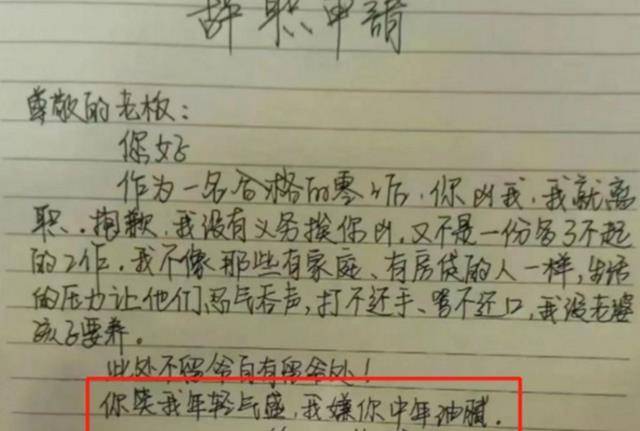 辞职申请
尊敬的老板：
你好
作为一名合格的零零后，你凶我，我就离
职．抱歉，我没有义务挨你凶，又不是一份多了不起
的工作，我不像那些有家庭、有房贷的人一样，生活
的压力让他们忍气吞声，打不还手、骂不还口，我没老婆
孩子要养。
此处不留爷自有留爷处！
你笑我年轻气盛，我嫌你中年油腻．